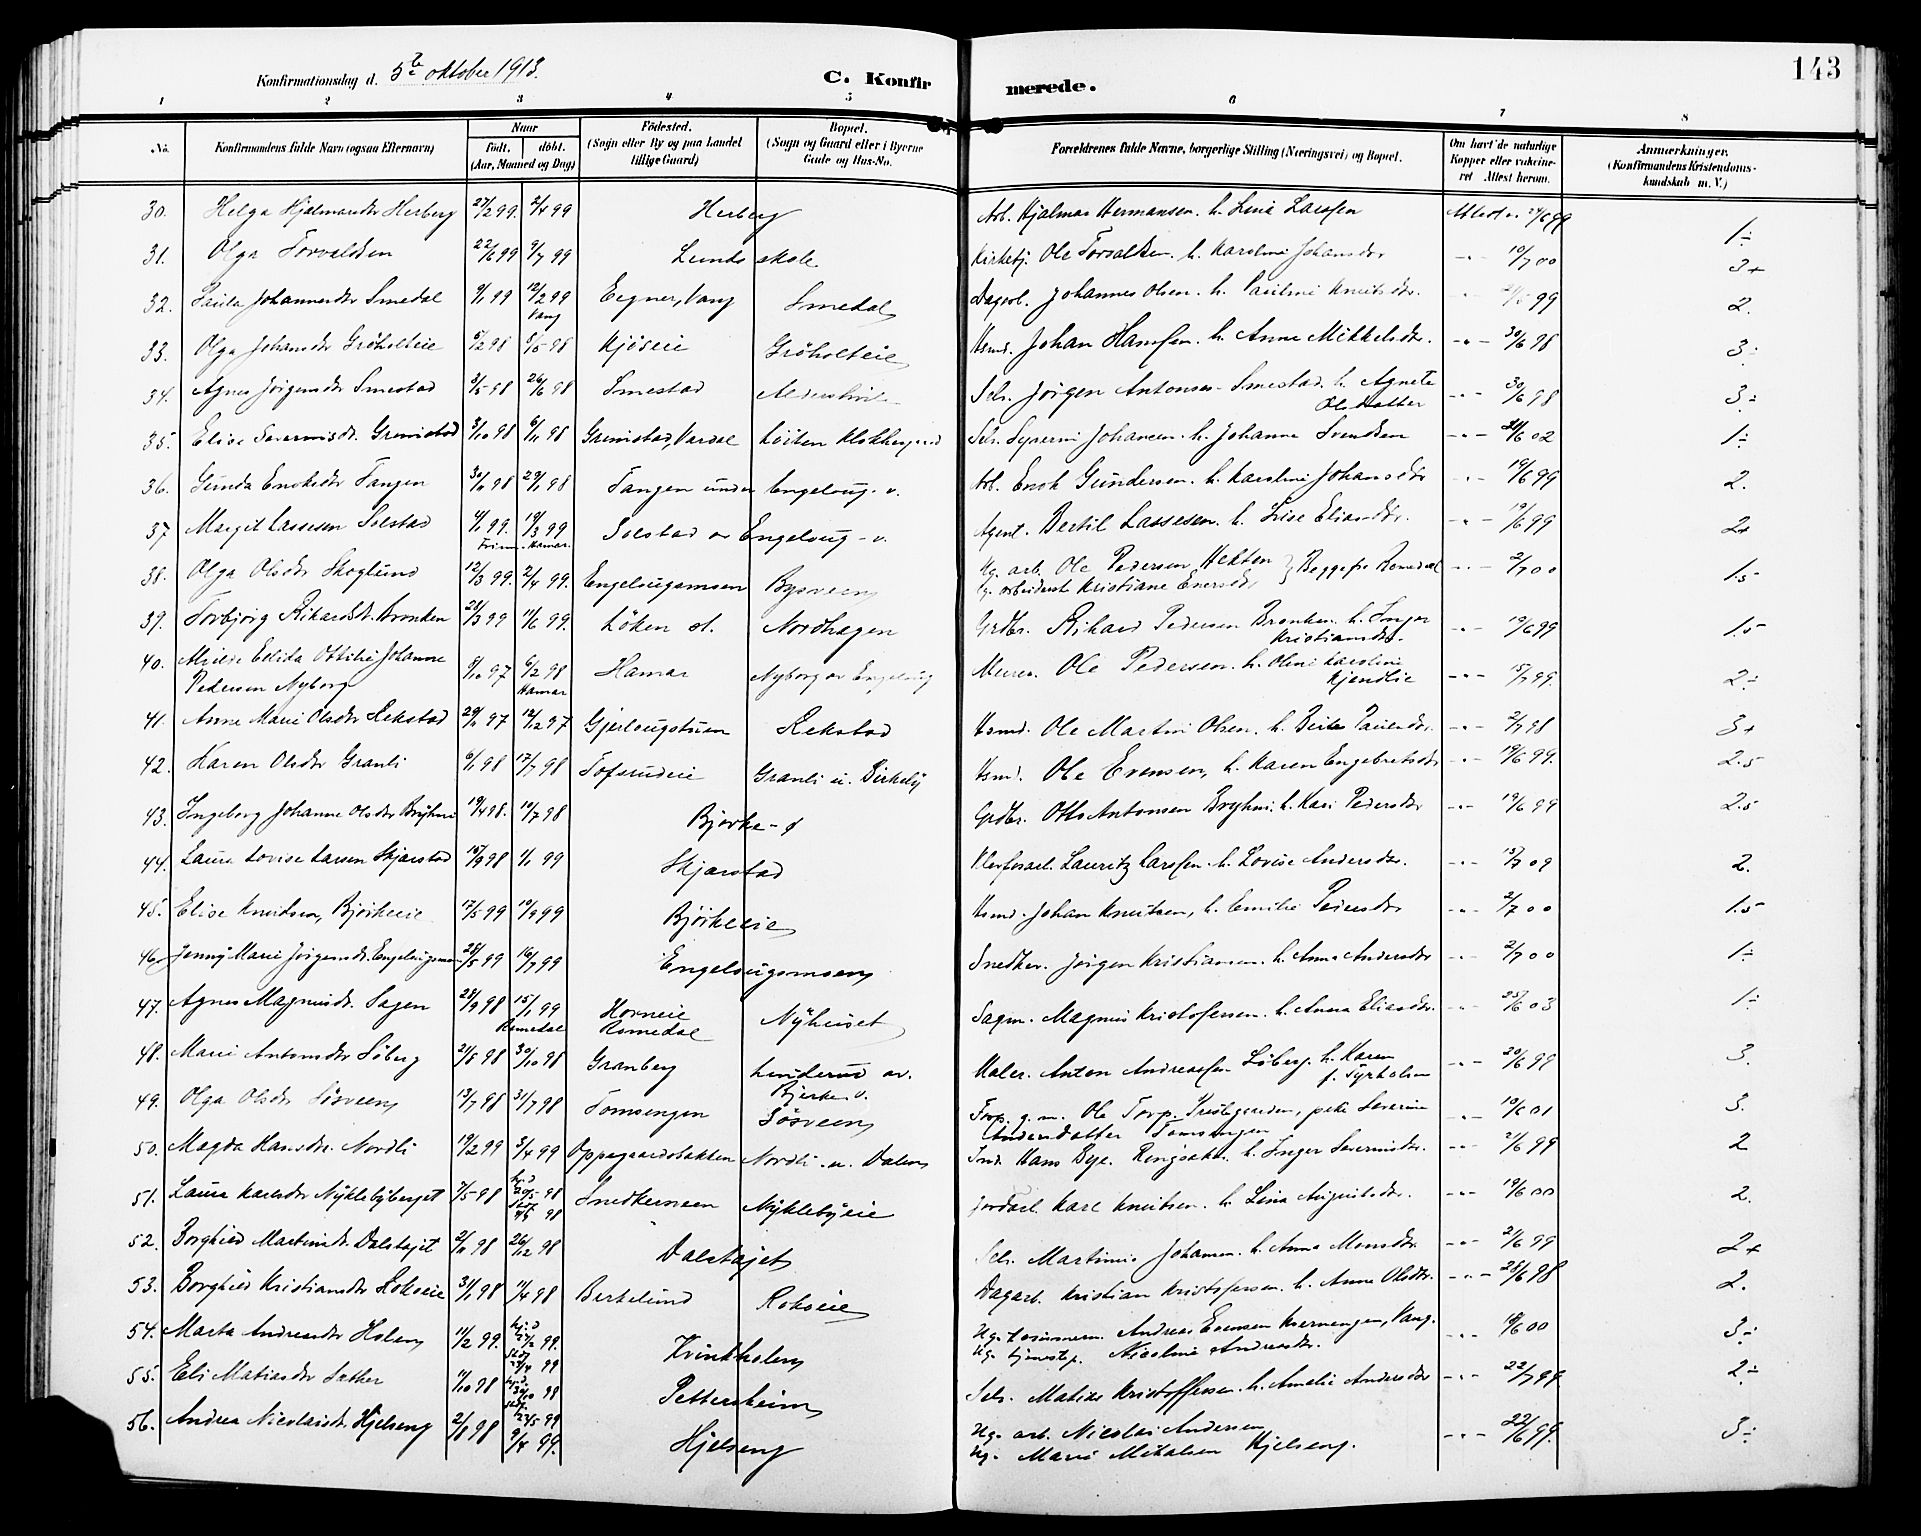 143
Konfirmationsdag d. 5te oktober 1913.
C. Konfirmerede.
1 2 3 4 5 6 7 8
No.
Konfirmandens fulde Navn (ogsaa Efternavn)
Naar
født. døbt.
(Aar, Maaned og Dag)
Födested.
(Sogn eller By og paa Landet
tillige Gaard)
Bopæl.
(Sogn og Gaard eller i Byerne
Gade og Hus-No.
Forældrenes fulde Navne, borgerlige Stilling (Næringsvei) og Bopæl.
Om havt de naturlige
Kopper eller vakcineret Attest herom.
Anmærkninger.
(Konfirmandens Kristendomskundskab m. V.)
30. Helga Hjalmarsdtr Herberg 27/2 99. 2/4 99 Herberg Arb. Hjalmar Hermansen. h. Lina Larssen Attest 1÷
31. Olga Torvaldsen 22/6 99 9/7 99 Lunds skole Kirkebj. Ole Torvaldsen. h. Karoline Johansdtr 10/7 00 3+
32. Paula Johannesdtr Smedal 9/1 99 12/2 99 Vang Vang Smedal Dagarb. Johannes Olsen. h. Pauline Knutsdtr. 99 2.
33. Olga Johansdtr Gröholteie 5/2 98 98 Kjöseie Gröholteie Husmd. Johan Hanssen. h. Anne Mikkelsdtr. 30/6 98 3÷
34. Agnes Jörgensdtr Smestad 3/5 98 26/6 98 Smestad Selv. Jörgen Antonsen Smestad. h. Agnete
Olsdatter 30/6 98 3÷
35. Elise Severinsdt. Grimstad 3/10 98 6/11 98 Grimstad, Vardal Löiten Klokkergaard Selv. Syverin Johansen. h. Johanne Svendsen 02 1÷
36. Gunda Enoksdtr Tangen 98 98 Tangen under Engeloug. v. Arb. Enok Gundersen. h. Karoline Johansdtr 19/6 99 2.
37 Margit Lassesen Solstad 4/1 99. 19/3 99 Hamar. Solstad av Engeloug - v. Agent. Bertil Lassesen. h. Lise Eliasdtr. 19/6 99 2+
38. Olga Olsdtr Skoglund 12/3 99. 2/4 99. Engelougsmoen Bysveen Ug. arb. Ole Pedersen Hekten } Begge fra Romedal
Ug. arbeiderst Kristiane Enersdtr 2/7 00 1.5
39. Torbjörg Rikardsdt. Bronken 21/3 99 11/6 99. Löken st. Nordhagen Grdbr. Rikard Pedersen Bronken. h. Inger
Kristiansdtr. 19/6 99 1.5
40. Ottilie Johanne
Pedersen Nyborg 9/10 97 6/2 98 Hamar Hamar Nyborg av Engeloug Murer. Ole Pedersen. h. Oline Karoline
Kjendlie 15/7 99. 2÷
41. Anne Marie Olsdtr Rekstad 29/11 97 12/12 97 Gjerlougstuen Rekstad Husmd. Ole Martin Olsen. h. Berte Paulsdtr. 2/7 98 3+
42. Karen Olsdtr Granli 6/1 98 17/7 98 Tofsrudeie Granli u. Kirkeby Husmd. Ole Evensen, h. Karen Engebretsdtr 19/6 99. 2.5
43. Ingeborg Johanne Olsdtr Bryhni 19/4 98. 10/7 98 Bjørke - ø Grdbr. Otto Antonsen Bryhni. h. Kari Pedersdtr 19/6 99 2.5
44. Laura Lovise Larsen Skjærstad 18/9 98 1/1 99 Skjærstad Lauritz Larssen. h. Lovise Andersdtr. 15/7 09 2.
45. Elise Knutsen, Björkeeie 17/5 99 10/9 99 Björkeeie Husmd. Johan Knutsen, h. Emilie Pedersdtr 2/7 00 1.5
46. Jenny Marie Jörgensdt. Engelougsmoen 28/5 99 16/7 99 Engelougsmoen Snedker. Jörgen Kristiansen. h. Anna Andersdtr 2/7 00 1÷
47. Agnes Magnusdt. Sagen 28/9 98 15/1 99 Romedal Horneie
Romedal Nyhuset Sagm. Magnus Kristofersen. h. Anna Eliasdtr. 25/6 03 1÷
48. Marie Antonsdtr Löberg 21/8 98 30/10 98 Granberg Linderud av.
Bjerke v. Maler. Anton Andreassen Löberg. h. Karen
f. Tyrholm 20/6 99 3.
49. Olga Olsdtr Sösveen 13/7 98 31/7 98 Tomsengen Sösveen Ole Torp. Prestegaarden, Severine
Andersdatter Tomsengen 10/6 01 3.
50. Magda Hansdtr. Nordli 19/2 99 3/4 99 Oppegaardsbakken Nordli u. Dalen Hans Bye. Ringsaker. h. Inger Severinsdtr. 21/6 99 2
51. Laura Karlsdtr Nyklebyberget 7/5 98 hj.d. 20/5 98 stdf. 98 Snedkermoen Nyklebyeie Jordarb. Karl Knutsen. h. Lina Augustsdtr. 19/6 00 2.
52. Borghild Martinsdt. Dalstøjet 2/11 98 26/12 98 Dalstøjet Selv. Martinus Johansen. h. Anna Monsdtr 21/6 99 2+
53. Borghild Kristiansdtr Rokoeie 31/1 98 11/4 98 Berkelund Rokoeie Dagarb. Kristian Kristofersen. h. Anne Olsdtr. 28/6 98 2.
54. Marta Andreasdtr Holen 11/2 99. hj.d 27/2 99. stdf 99 Kvinkholen Ug. Andreas Evensen Kvernengen, Vang.
Ug. tjenestep. Nicoline Andreasdtr. 18/6 00 3÷
55. Eli Matiasdtr Sæther 11/10 98 hj.d. 30/10 98 stdf. 28/5 99 Pettersheim Selv. Matias Kristoffersen. h. Amalie Andersdtr 22/7 99 2÷
56. Andrea Nicolaisdt. Hjelseng 2/8 98 9/4 99. Hjelseng Ug. arb. Nicolai Andersen
Ug. Marie Mikalsen Hjelseng. 22/6 99. 3÷